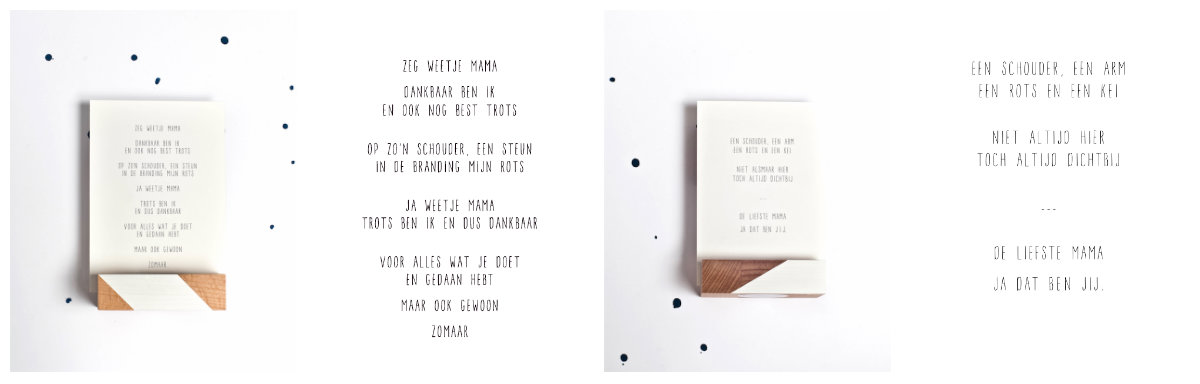 ZEG WEETJE MAMA
DANKBAAR BEN IK
EN OOK NOG BEST TROTS
OP ZO'N SCHOUDER, EEN STEUN
IN DE BRANDING MIJN ROTS
JA WEETJE MAMA
TROTS BEN IK
EN DUS DANKBAAR
VOOR ALLES WAT JE DOET
EN GEDAAN HEBT
MAAR OOK GEWOON
ZOMAAR
ZEG WEETJE MAMA
DANKBAAR BEN IK
EN OOK NOG BEST TROTS
OP ZO'N SCHOUDER, EEN STEUN
IN DE BRANDING MIJN ROTS
JA WEETJE MAMA
TROTS BEN IK EN DUS DANKBAAR
VOOR ALLES WAT JE DOET
EN GEDAAN HEBT
MAAR OOK GEWOON
ZOMAAR
EEN SCHOUDER, EEN ARM
EEN ROTS EN EEN KEI
NIET ALSMAAR HIER
TOCH ALTIJD DICHTBIJ
---
DE LIEFSTE MAMA
JA DAT BEN JIJ.
EEN SCHOUDER, EEN ARM
EEN ROTS EN EEN KEI
NIET ALTIJD HIER
TOCH ALTIJD DICHTBIJ
---
DE LIEFSTE MAMA
JA DAT BEN JIJ.